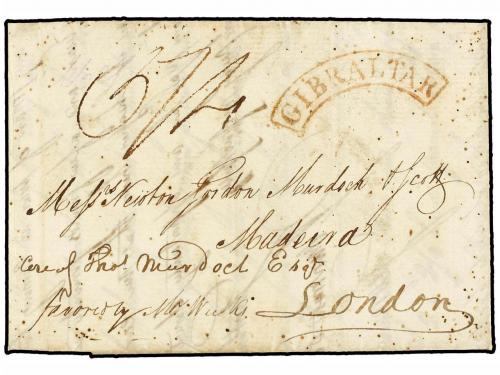 GIBRALTAR
Messrs Newton Gordon Murdoch & Scott
Madeira
Care of Thos Murdoch Esqr
favored by Mr
London